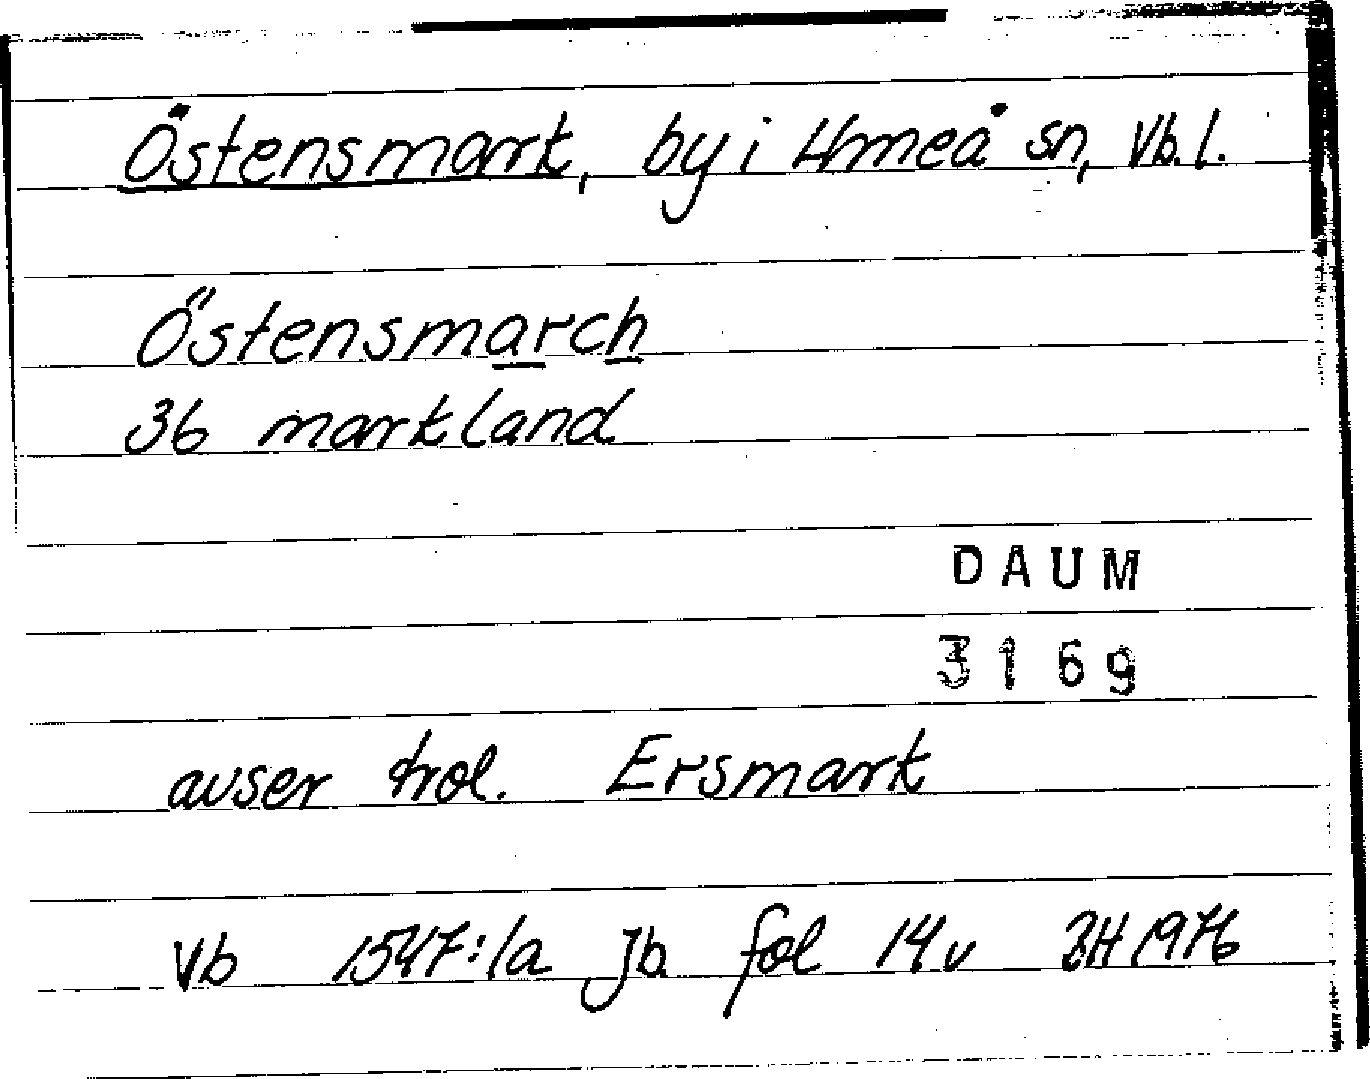 Östensmark, by i Umeå sn, Vb. l.
Östensmarch
36 markland
DAUM
3169
avser trol. Ersmark
Vb 1547:1a Jb fol 14 v BH 1976